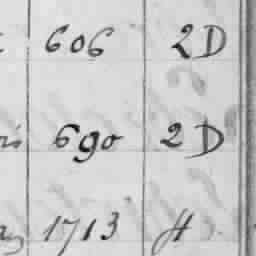 606 2D
690 2D
1713 H